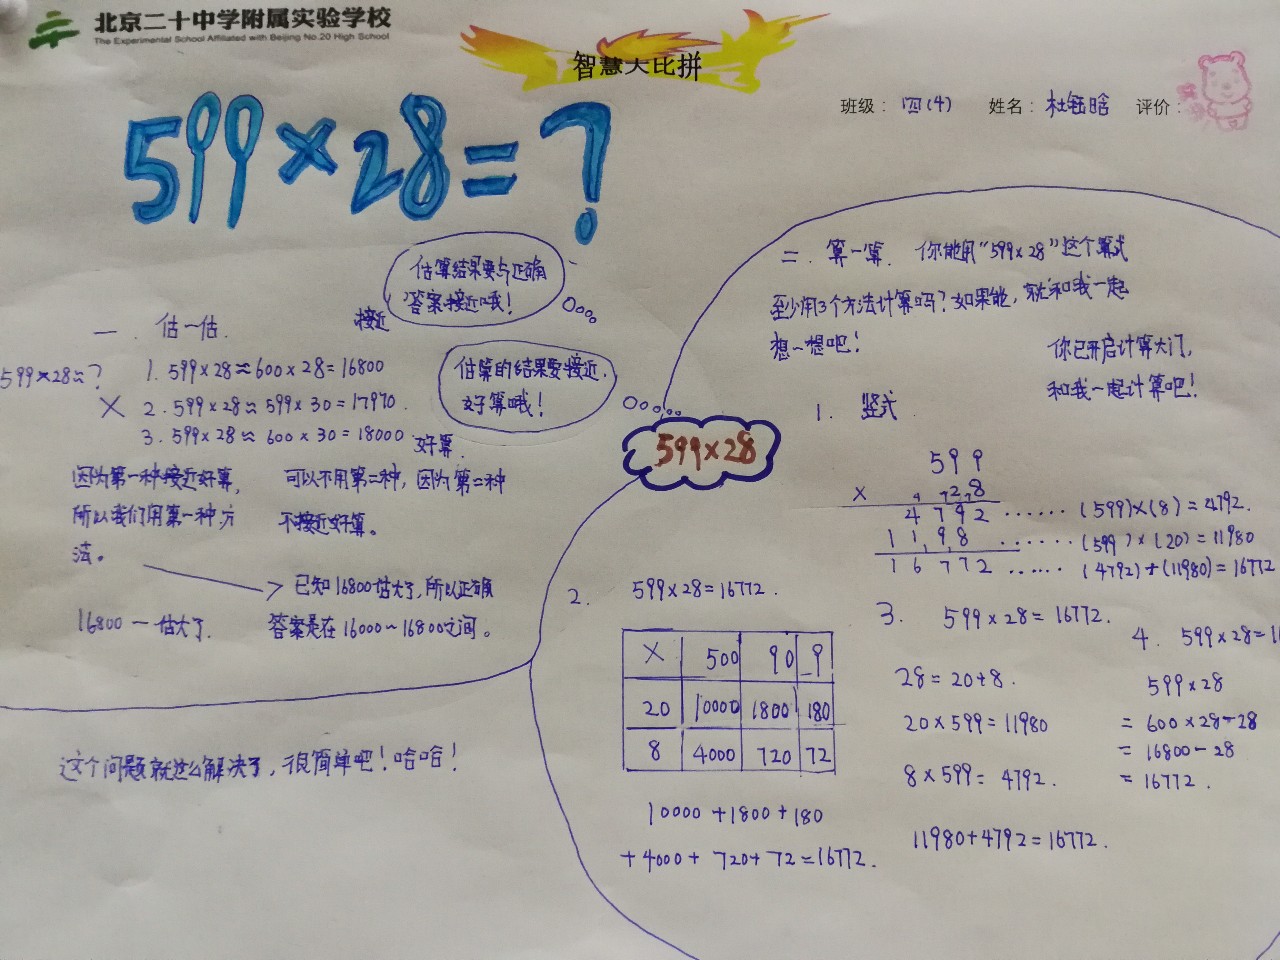 北京二十中学附属实验学校
The Experimental School Affiliated with Beijing No.20 High School
智慧大比拼
班级： 四(4) 姓名：杜钰晗 评价：
599×28=?
估算结果要与正确
答案接近哦！
接近
一 . 估一估.
599×28≈?
1. 599×28≈600×28=16800
× 2. 599×28≈599×30=17970.
3. 599×28≈600×30=18000
好算.
估算的结果要接近.
好算哦！
因为第一种接近好算，
所以我们用第一种方
法。
可以不用第二种，因为第二种
不接近好算。
16800 — 估大了.
已知16800估大了，所以正确
答案是在16000~16800之间。
这个问题就这么解决了，很简单吧！哈哈！
599×28
二 . 算一算. 你能用“599×28”这个算式
至少用3个方法计算吗？如果能，就和我一起
想一想吧！
你已开启计算大门，
和我一起计算吧！
1. 竖式.
599
× 28
4792 ...... (599)×(8)=4792.
1198 ...... (599)×(20)=11980
16772 ...... (4792)+(11980)=16772
2. 599×28=16772.
× 500 90 9
20 10000 1800 180
8 4000 720 72
10000+1800+180
+4000+720+72=16772.
3. 599×28=16772.
28=20+8.
20×599=11980
8×599=4792.
11980+4792=16772.
4. 599×28=1
599×28
=600×28-28
=16800-28
=16772.